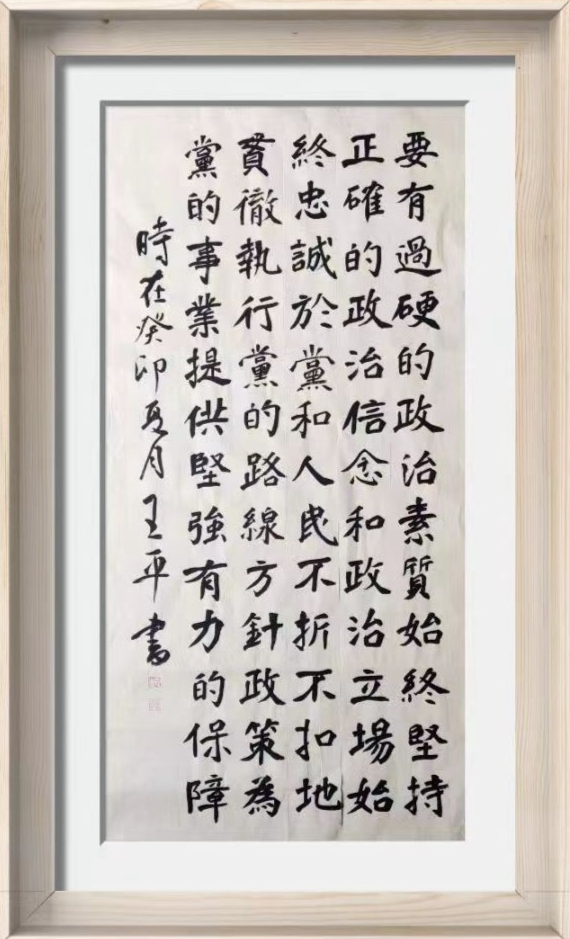 要有過硬的政治素質始終堅持
正確的政治信念和政治立場始
終忠誠於黨和人民不折不扣地
貫徹執行黨的路線方針政策為
黨的事業提供堅強有力的保障
時在癸卯夏月王平書